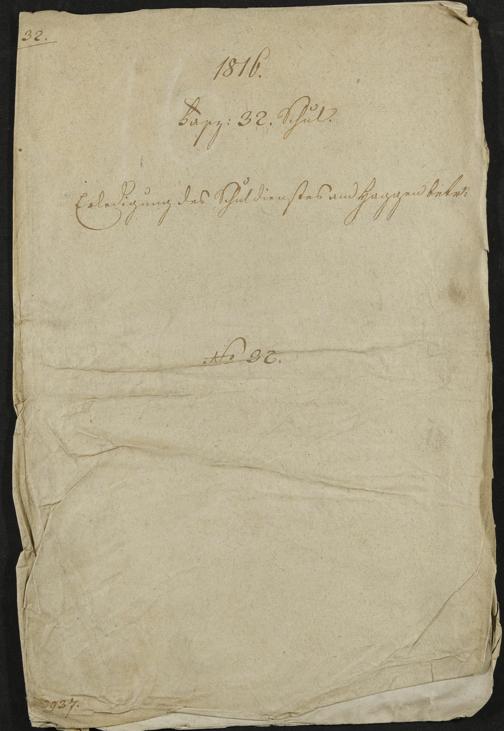 32.
1816.
32. Schul.
Erledigung des Schuldienstes am Haggen betr:
No 32.
937.